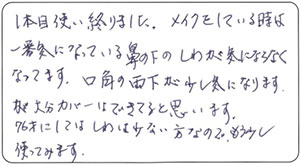 1本目使い終りました。メイクをしている時は
一番気になっている鼻の下のしわが気にならなく
なってます。口角の両下が少し気になります
が大分カバーはできてると思います。
76才にしてはしわは少ない方なので、もう少し
使ってみます。